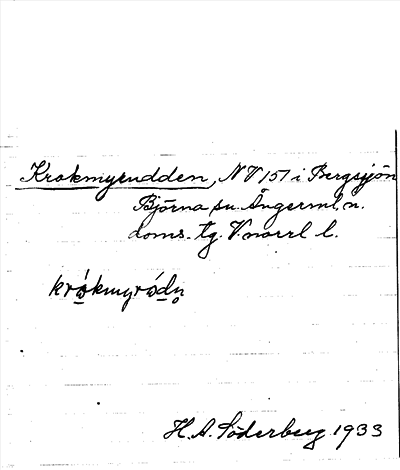 Krokmyrudden, NV 151 i Bergsjön
Björna sn. Ångerml. n.
doms. tg. V norrl l.
krókmyródn̥
H. A. Söderberg 1933